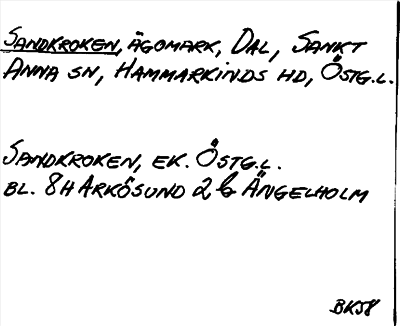 SANDKROKEN, ÄGOMARK, DAL, SANKT
ANNA SN, HAMMARKINDS HD, ÖSTG.L.
SANDKROKEN, EK. ÖSTG.L.
BL. 8H ARKÖSUND 2 b ÄNGELHOLM
BKJ8